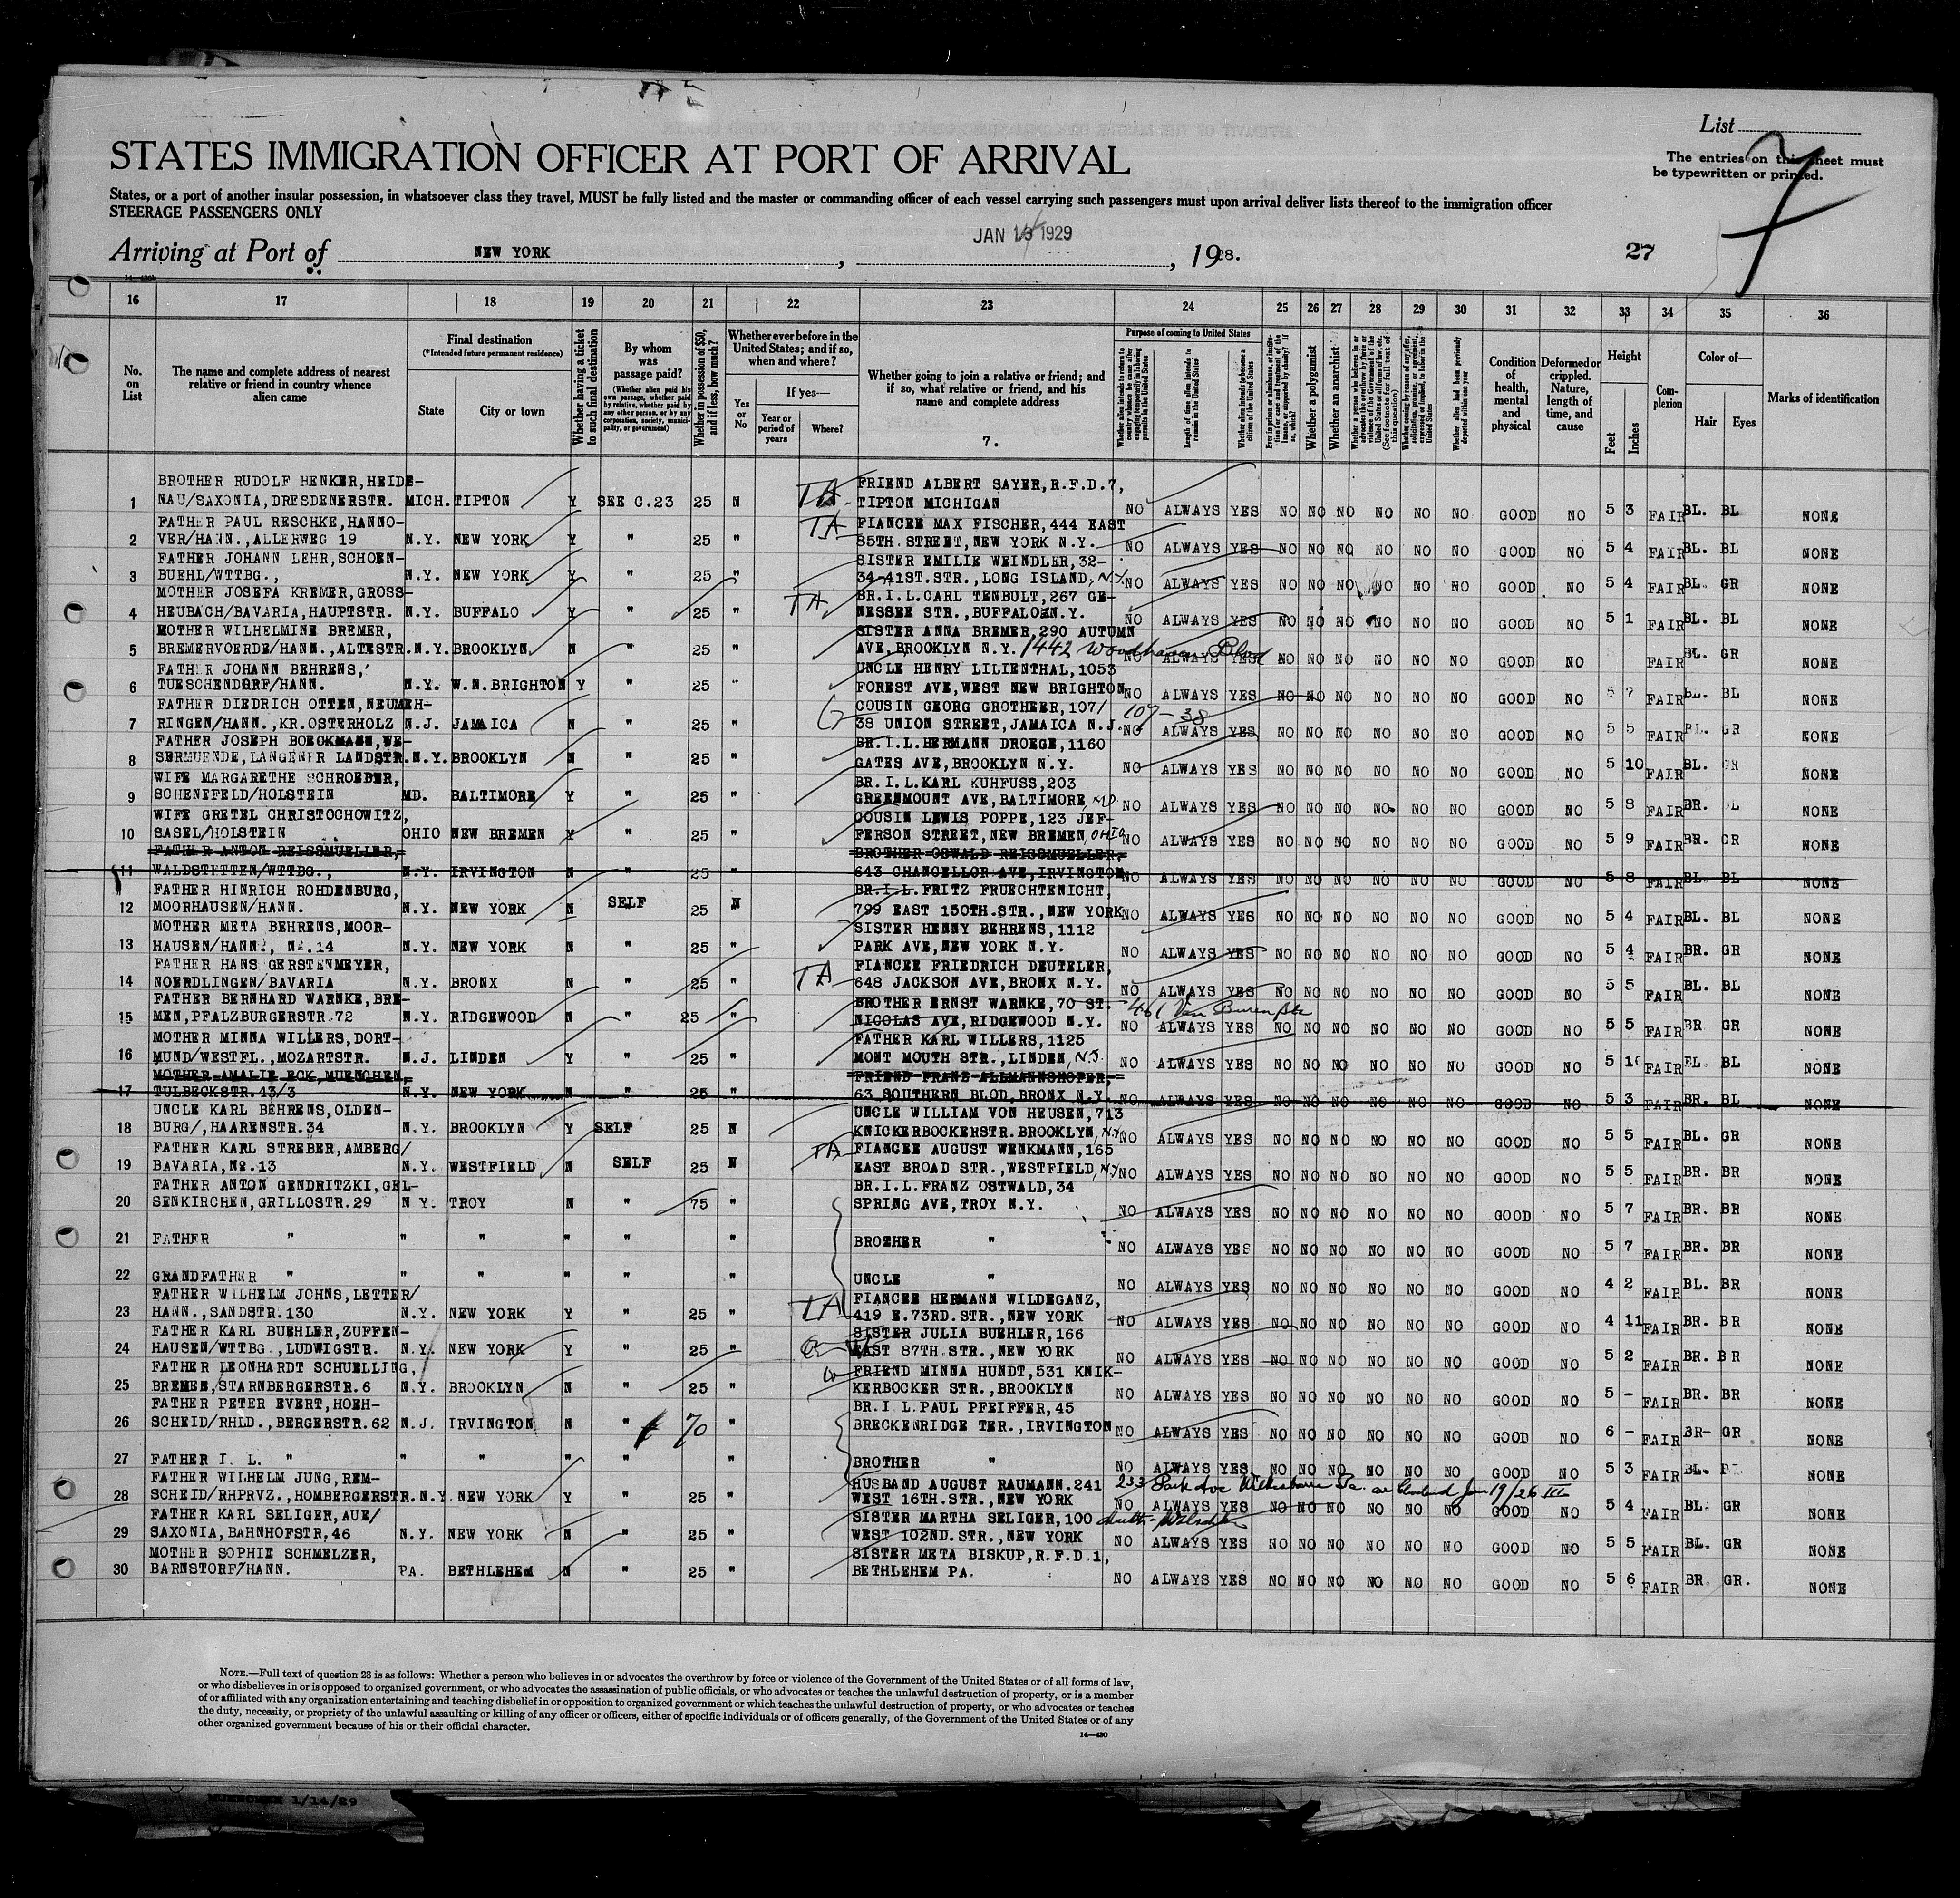 List
7
The entries on this sheet must
be typewritten or printed.
STATES IMMIGRATION OFFICER AT PORT OF ARRIVAL
States, or a port of another insular possession, in whatsoever class they travel, MUST be fully listed and the master or commanding officer of each vessel carrying such passengers must upon arrival deliver lists thereof to the immigration officer
STEERAGE PASSENGERS ONLY
JAN 13 1929
Arriving at Port of NEW YORK, , 1928.
27
16 17 18 19 20 21 22 23 24 25 26 27 28 29 30 31 32 33 34 35 36
No. on List
The name and complete address of nearest relative or friend in country whence alien came
Final destination
(*Intended future permanent residence)
State
City or town
Whether having a ticket to such final destination
By whom was passage paid?
(Whether alien paid his own passage, whether paid by relative, whether paid by any other person, or by any corporation, society, municipality, or government)
Whether in possession of $50, and if less, how much?
Whether ever before in the United States; and if so, when and where?
Yes or No
If yes—
Year or period of years
Where?
Whether going to join a relative or friend; and if so, what relative or friend, and his name and complete address
7.
Purpose of coming to United States
Length of time alien intends to remain in the United States
Whether alien intends to become a citizen of the United States
Whether a polygamist
Whether an anarchist
(See footnote for full text of this question)
Condition of health, mental and physical
Deformed or crippled. Nature, length of time, and cause
Height
Feet
Inches
Complexion
Color of—
Hair
Eyes
Marks of identification
BROTHER RUDOLF HENKER, HEIDE- FRIEND ALBERT SAYER, R.F.D.7,
1 NAU/SAXONIA, DRESDENERSTR. MICH. TIPTON Y SEE C.23 25 N TA TIPTON MICHIGAN NO ALWAYS YES NO NO NO NO NO NO GOOD NO 5 3 FAIR BL. BL NONE
FATHER PAUL RESCHKE, HANNO- TA FIANCEE MAX FISCHER, 444 EAST
2 VER/HANN., ALLERWEG 19 N.Y. NEW YORK Y " 25 " 85TH. STREET, NEW YORK N.Y. NO ALWAYS YES NO NO NO NO NO NO GOOD NO 5 4 FAIR BL. BL NONE
FATHER JOHANN LEHR, SCHOEN- SISTER EMILIE WEINDLER, 32-
3 BUEHL/WTTBG., N.Y. NEW YORK Y " 25 " 34-41ST. STR., LONG ISLAND, N.Y. NO ALWAYS YES NO NO NO NO NO NO GOOD NO 5 4 FAIR BL. GR NONE
MOTHER JOSEFA KREMER, GROSS- TA BR.I.L. CARL TENBULT, 267 GE-
4 HEUBACH/BAVARIA, HAUPTSTR. N.Y. BUFFALO Y " 25 " NESSEE STR., BUFFALO N.Y. NO ALWAYS YES NO NO NO NO NO NO GOOD NO 5 1 FAIR BL. BL NONE
MOTHER WILHELMINE BREMER, SISTER ANNA BREMER, 290 AUTUMN
5 BREMERVOERDE/HANN., ALTESTR. N.Y. BROOKLYN N " 25 " AVE, BROOKLYN N.Y. 1442 Woodhaven Blvd NO ALWAYS YES NO NO NO NO NO NO GOOD NO FAIR BL. GR NONE
FATHER JOHANN BEHRENS, UNCLE HENRY LILIENTHAL, 1053
6 TUESCHENDORF/HANN. N.Y. W.N. BRIGHTON Y " 25 " FOREST AVE, WEST NEW BRIGHTON NO ALWAYS YES NO NO NO NO NO NO GOOD NO 5 7 FAIR BL. BL NONE
FATHER DIEDRICH OTTEN, NEUMEH- COUSIN GEORG GROTHEER, 107/ 107-38
7 RINGEN/HANN., KR. OSTERHOLZ N.J. JAMAICA N " 25 " 38 UNION STREET, JAMAICA N.J. NO ALWAYS YES NO NO NO NO NO NO GOOD NO 5 5 FAIR BL. GR NONE
FATHER JOSEPH BOECKMANN, WE- BR.I.L. HERMANN DROEGE, 1160
8 SERMUENDE, LANGENER LANDSTR. N.Y. BROOKLYN N " 25 " GATES AVE, BROOKLYN N.Y. NO ALWAYS YES NO NO NO NO NO NO GOOD NO 5 10 FAIR BL. GR NONE
WIFE MARGARETHE SCHROEDER, BR.I.L. KARL KUHFUSS, 203
9 SCHENEFELD/HOLSTEIN MD. BALTIMORE Y " 25 " GREENMOUNT AVE, BALTIMORE, MD NO ALWAYS YES NO NO NO NO NO NO GOOD NO 5 8 FAIR BR. L NONE
WIFE GRETEL CHRISTOCHOWITZ, COUSIN LEWIS POPPE, 123 JEF-
10 SASEL/HOLSTEIN OHIO NEW BREMEN Y " 25 " FERSON STREET, NEW BREMEN, OHIO NO ALWAYS YES NO NO NO NO NO NO GOOD NO 5 9 FAIR BR. GR NONE
FATHER ANTON REISSMUELLER, BROTHER OSWALD REISSMUELLER,
11 WALDSTETTEN/WTTBG., N.Y. IRVINGTON N " 25 " 643 CHANCELLOR AVE, IRVINGTON NO ALWAYS YES NO NO NO NO NO NO GOOD NO 5 8 FAIR BL. BL NONE
FATHER HINRICH ROHDENBURG, BR.I.L. FRITZ FRUECHTENICHT,
12 MOORHAUSEN/HANN. N.Y. NEW YORK N SELF 25 N 799 EAST 150TH. STR., NEW YORK NO ALWAYS YES NO NO NO NO NO NO GOOD NO 5 4 FAIR BL. BL NONE
MOTHER META BEHRENS, MOOR- SISTER HENNY BEHRENS, 1112
13 HAUSEN/HANN., No. 14 N.Y. NEW YORK N " 25 " PARK AVE, NEW YORK N.Y. NO ALWAYS YES NO NO NO NO NO NO GOOD NO 5 4 FAIR BR. GR NONE
FATHER HANS GERSTENMEYER, FIANCEE FRIEDRICH DEUTELER,
14 NOERDLINGEN/BAVARIA N.Y. BRONX N " 25 " TA 648 JACKSON AVE, BRONX N.Y. NO ALWAYS YES NO NO NO NO NO NO GOOD NO 5 5 FAIR BL. BL NONE
FATHER BERNHARD WARNKE, BRE- BROTHER ERNST WARNKE, 70 ST. 461 Van Buren Str
15 MEN, PFALZBURGERSTR. 72 N.Y. RIDGEWOOD N " 25 " NICOLAS AVE, RIDGEWOOD N.Y. NO ALWAYS YES NO NO NO NO NO NO GOOD NO 5 5 FAIR BR GR NONE
MOTHER MINNA WILLERS, DORT- FATHER KARL WILLERS, 1125
16 MUND/WESTFL., MOZARTSTR. N.J. LINDEN Y " 25 " MONT MOUTH STR., LINDEN, N.J. NO ALWAYS YES NO NO NO NO NO NO GOOD NO 5 10 FAIR BL. BL NONE
MOTHER AMALIE ECK, MUENCHEN, FRIEND FRANZ ALLMANNSHOFER,
17 TULBECKSTR. 43/3 N.Y. NEW YORK N " 25 " 63 SOUTHERN BLOD, BRONX N.Y. NO ALWAYS YES NO NO NO NO NO NO GOOD NO 5 3 FAIR BR. BL NONE
UNCLE KARL BEHRENS, OLDEN- UNCLE WILLIAM VON HEUSEN, 713
18 BURG/, HAARENSTR. 34 N.Y. BROOKLYN Y SELF 25 N KNICKERBOCKERSTR. BROOKLYN, N.Y. NO ALWAYS YES NO NO NO NO NO NO GOOD NO 5 5 FAIR BL. GR NONE
FATHER KARL STREBER, AMBERG/ TA FIANCEE AUGUST WENKMANN, 165
19 BAVARIA, No. 13 N.Y. WESTFIELD N SELF 25 N EAST BROAD STR., WESTFIELD, N.Y NO ALWAYS YES NO NO NO NO NO NO GOOD NO 5 5 FAIR BR. BR NONE
FATHER ANTON GENDRITZKI, GEL- BR.I.L. FRANZ OSTWALD, 34
20 SENKIRCHEN, GRILLOSTR. 29 N Y. TROY N " 75 " SPRING AVE, TROY N.Y. NO ALWAYS YES NO NO NO NO NO NO GOOD NO 5 7 FAIR BR. BR NONE
21 FATHER " " " " " " BROTHER " NO ALWAYS YES NO NO NO NO NO NO GOOD NO 5 7 FAIR BR. BR NONE
22 GRANDFATHER " " " " " " UNCLE " NO ALWAYS YES NO NO NO NO NO NO GOOD NO 4 2 FAIR BL. BR NONE
FATHER WILHELM JOHNS, LETTER/ FIANCEE HERMANN WILDEGANZ,
23 HANN., SANDSTR. 130 N.Y. NEW YORK Y " 25 " TA 419 E. 73RD. STR., NEW YORK NO ALWAYS YES NO NO NO NO NO NO GOOD NO 4 11 FAIR BR. BR NONE
FATHER KARL BUEHLER, ZUFFEN- SISTER JULIA BUEHLER, 166
24 HAUSEN/WTTBG., LUDWIGSTR. N.Y. NEW YORK Y " 25 " EAST 87TH. STR., NEW YORK NO ALWAYS YES NO NO NO NO NO NO GOOD NO 5 2 FAIR BR. BR NONE
FATHER LEONHARDT SCHUELLING, FRIEND MINNA HUNDT, 531 KNIK-
25 BREMEN, STARNBERGERSTR. 6 N.Y. BROOKLYN N " 25 " KERBOCKER STR., BROOKLYN NO ALWAYS YES NO NO NO NO NO NO GOOD NO 5 - FAIR BR. BR NONE
FATHER PETER EVERT, HOEH- BR.I L. PAUL PFEIFFER, 45
26 SCHEID/RHLD., BERGERSTR. 62 N.J. IRVINGTON N " 70 " BRECKENRIDGE TER., IRVINGTON NO ALWAYS YES NO NO NO NO NO NO GOOD NO 6 - FAIR BR- GR NONE
27 FATHER I. L. " " " " " " BROTHER " NO ALWAYS YES NO NO NO NO NO NO GOOD NO 5 3 FAIR BL. NONE
FATHER WILHELM JUNG, REM- HUSBAND AUGUST RAUMANN. 241 233 Park Ave Wilkesbarre Pa.
28 SCHEID/RHPRVZ., HOMBERGERSTR. N.Y. NEW YORK Y " 25 " WEST 16TH. STR., NEW YORK NO ALWAYS YES NO NO NO NO NO NO GOOD NO 5 4 FAIR BL. GR NONE
FATHER KARL SELIGER, AUE/ SISTER MARTHA SELIGER, 100
29 SAXONIA, BAHNHOFSTR, 46 N.Y. NEW YORK N " 25 " WEST 102ND. STR., NEW YORK NO ALWAYS YES NO NO NO NO NO NO GOOD NO 5 5 FAIR BL. GR NONE
MOTHER SOPHIE SCHMELZER, SISTER META BISKUP, R.F.D.1,
30 BARNSTORF/HANN. PA. BETHLEHEM N " 25 " BETHLEHEM PA. NO ALWAYS YES NO NO NO NO NO NO GOOD NO 5 6 FAIR BR. GR. NONE
NOTE.—Full text of question 28 is as follows: Whether a person who believes in or advocates the overthrow by force or violence of the Government of the United States or of all forms of law,
or who disbelieves in or is opposed to organized government, or who advocates the assassination of public officials, or who advocates or teaches the unlawful destruction of property, or is a member
of or affiliated with any organization entertaining and teaching disbelief in or opposition to organized government or which teaches the unlawful destruction of property, or who advocates or teaches
the duty, necessity, or propriety of the unlawful assaulting or killing of any officer or officers, either of specific individuals or of officers generally, of the Government of the United States or of any
other organized government because of his or their official character.
14—430
MUENCHEN 1/14/29